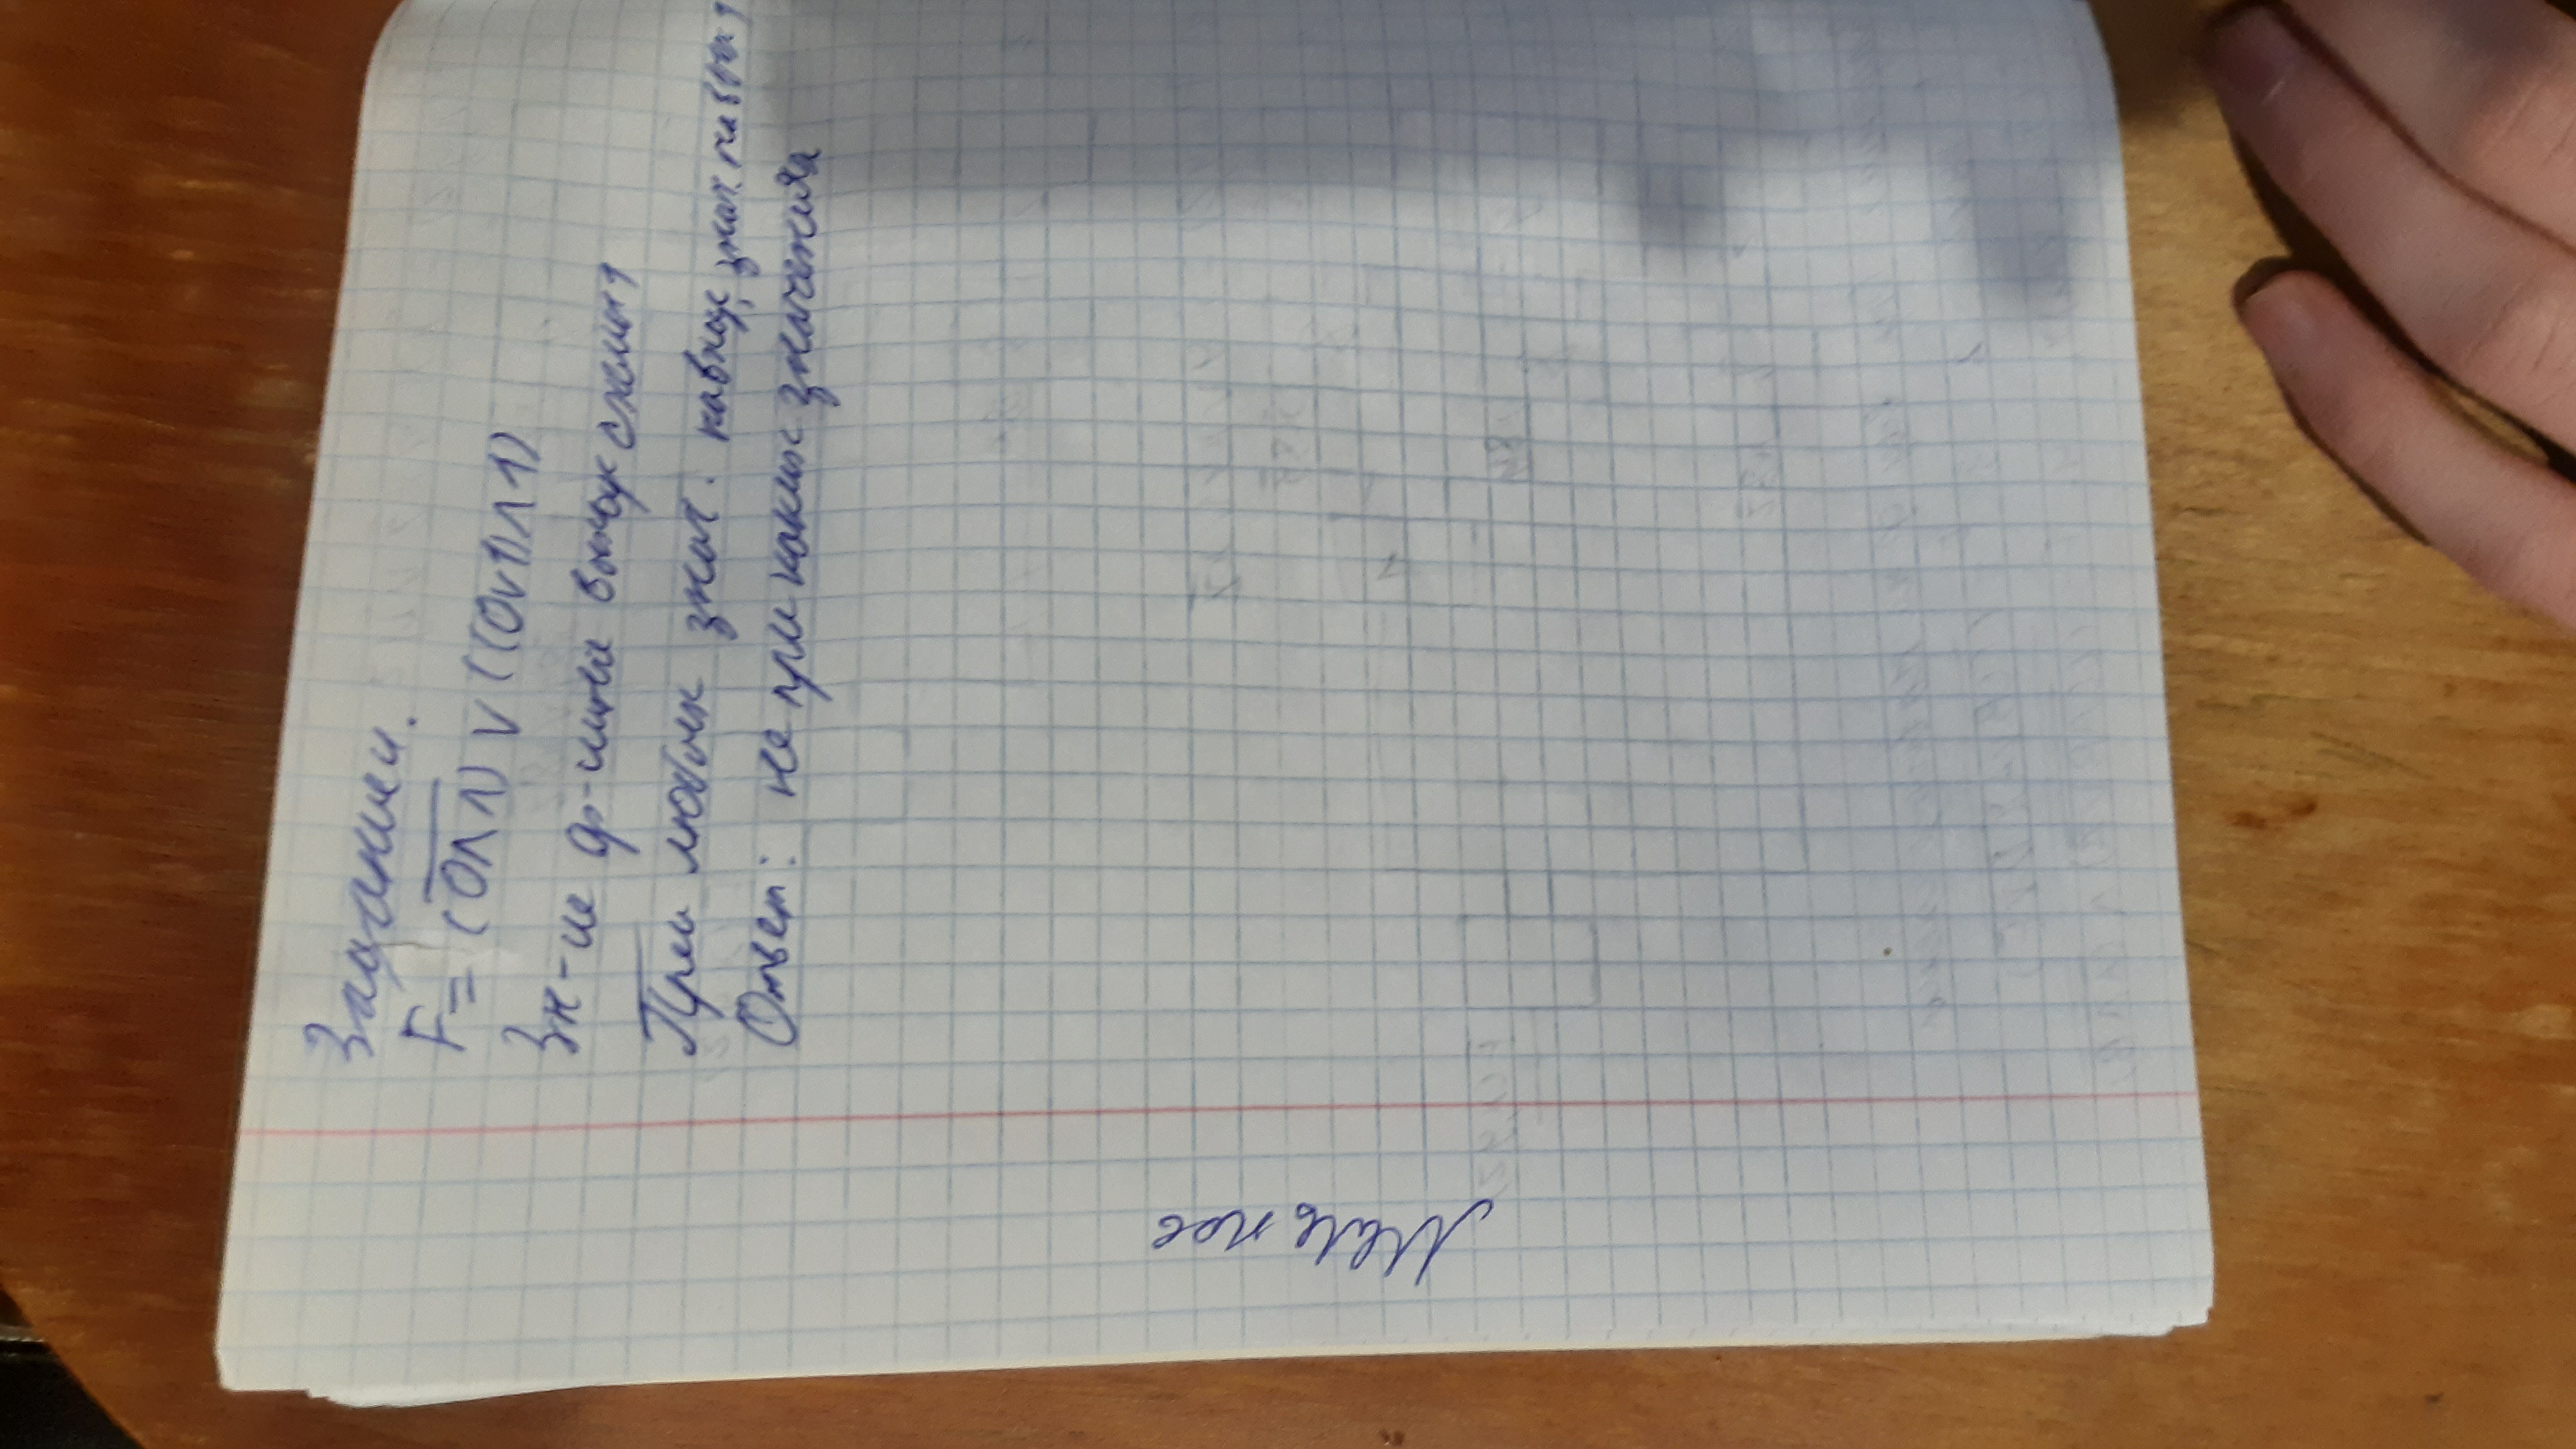 Задание 4.
F= (0∧1) ∨ ((0∨1)∧1)
Зн-ие ф-ции на выходе схемы 1
При любых знач. на входе, знач. на вых 1
Ответ: не при каких значениях
Мельков